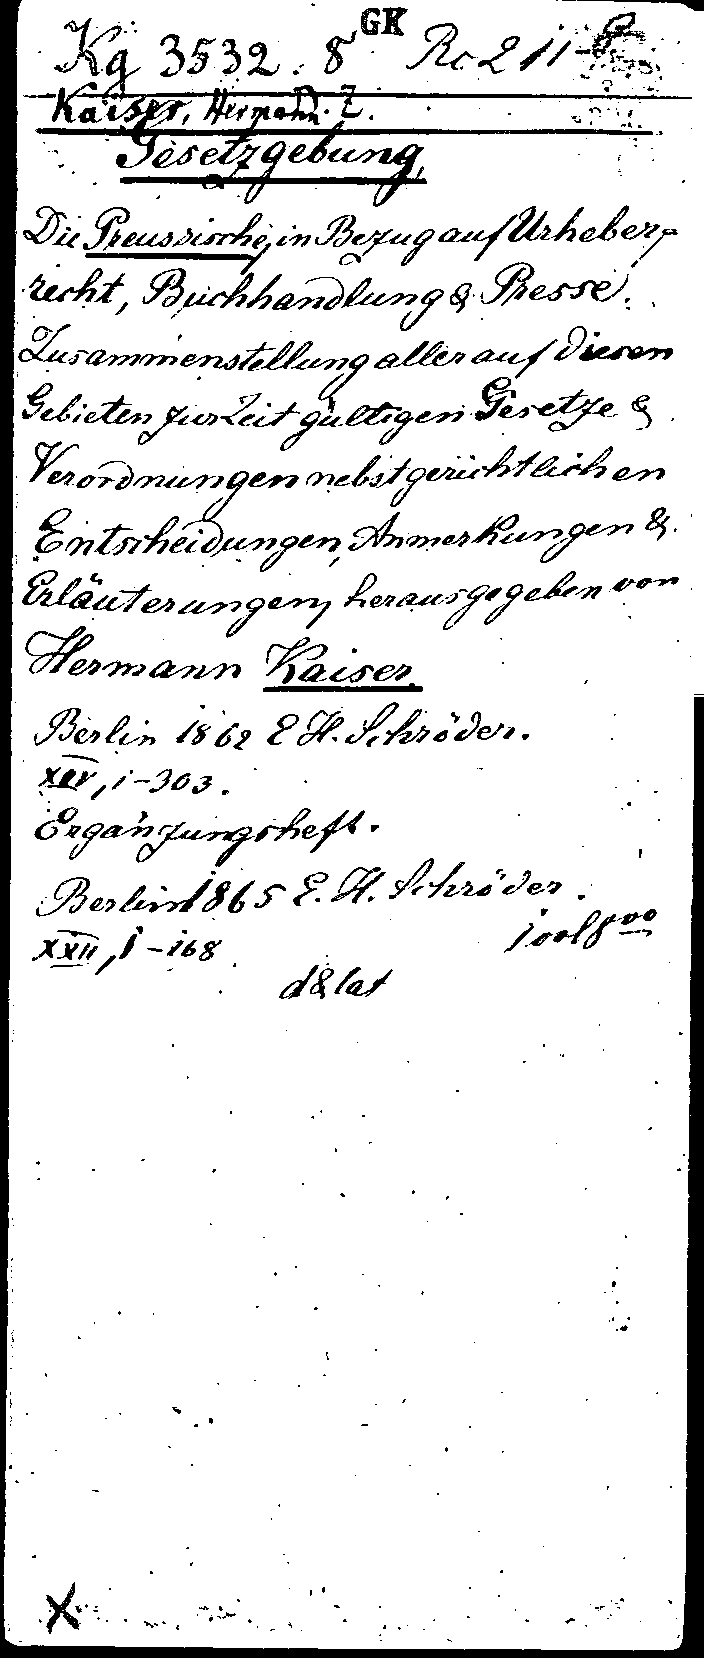 GK
Kg 3532. 8 Rc 211-8
Kaiser, Hermann. Z.
Gesetzgebung,
Die Preussische, in Bezug auf Urheber-
recht, Buchhandlung & Presse.
Zusammenstellung aller auf diesen
Gebieten zur Zeit gültigen Gesetze &
Verordnungen nebst gerichtlichen
Entscheidungen, Anmerkungen &
Erläuterungen, herausgegeben von
Hermann Kaiser.
Berlin 1862 E H. Schröder.
XIV, 1-303.
Ergänzungsheft.
Berlin 1865 E. H. Schröder.
XXII, 1-168
d & lat
X